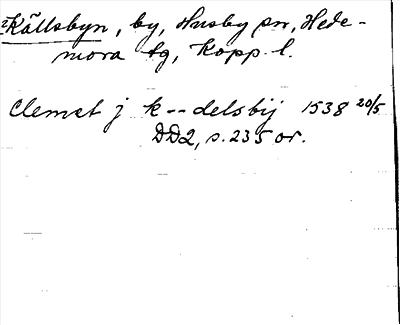 2Källsbyn, by, Husby sn, Hede-
mora tg, Kopp. l.
Clemet j k--delsbij 1538 20/5
DD2, s. 235 or.